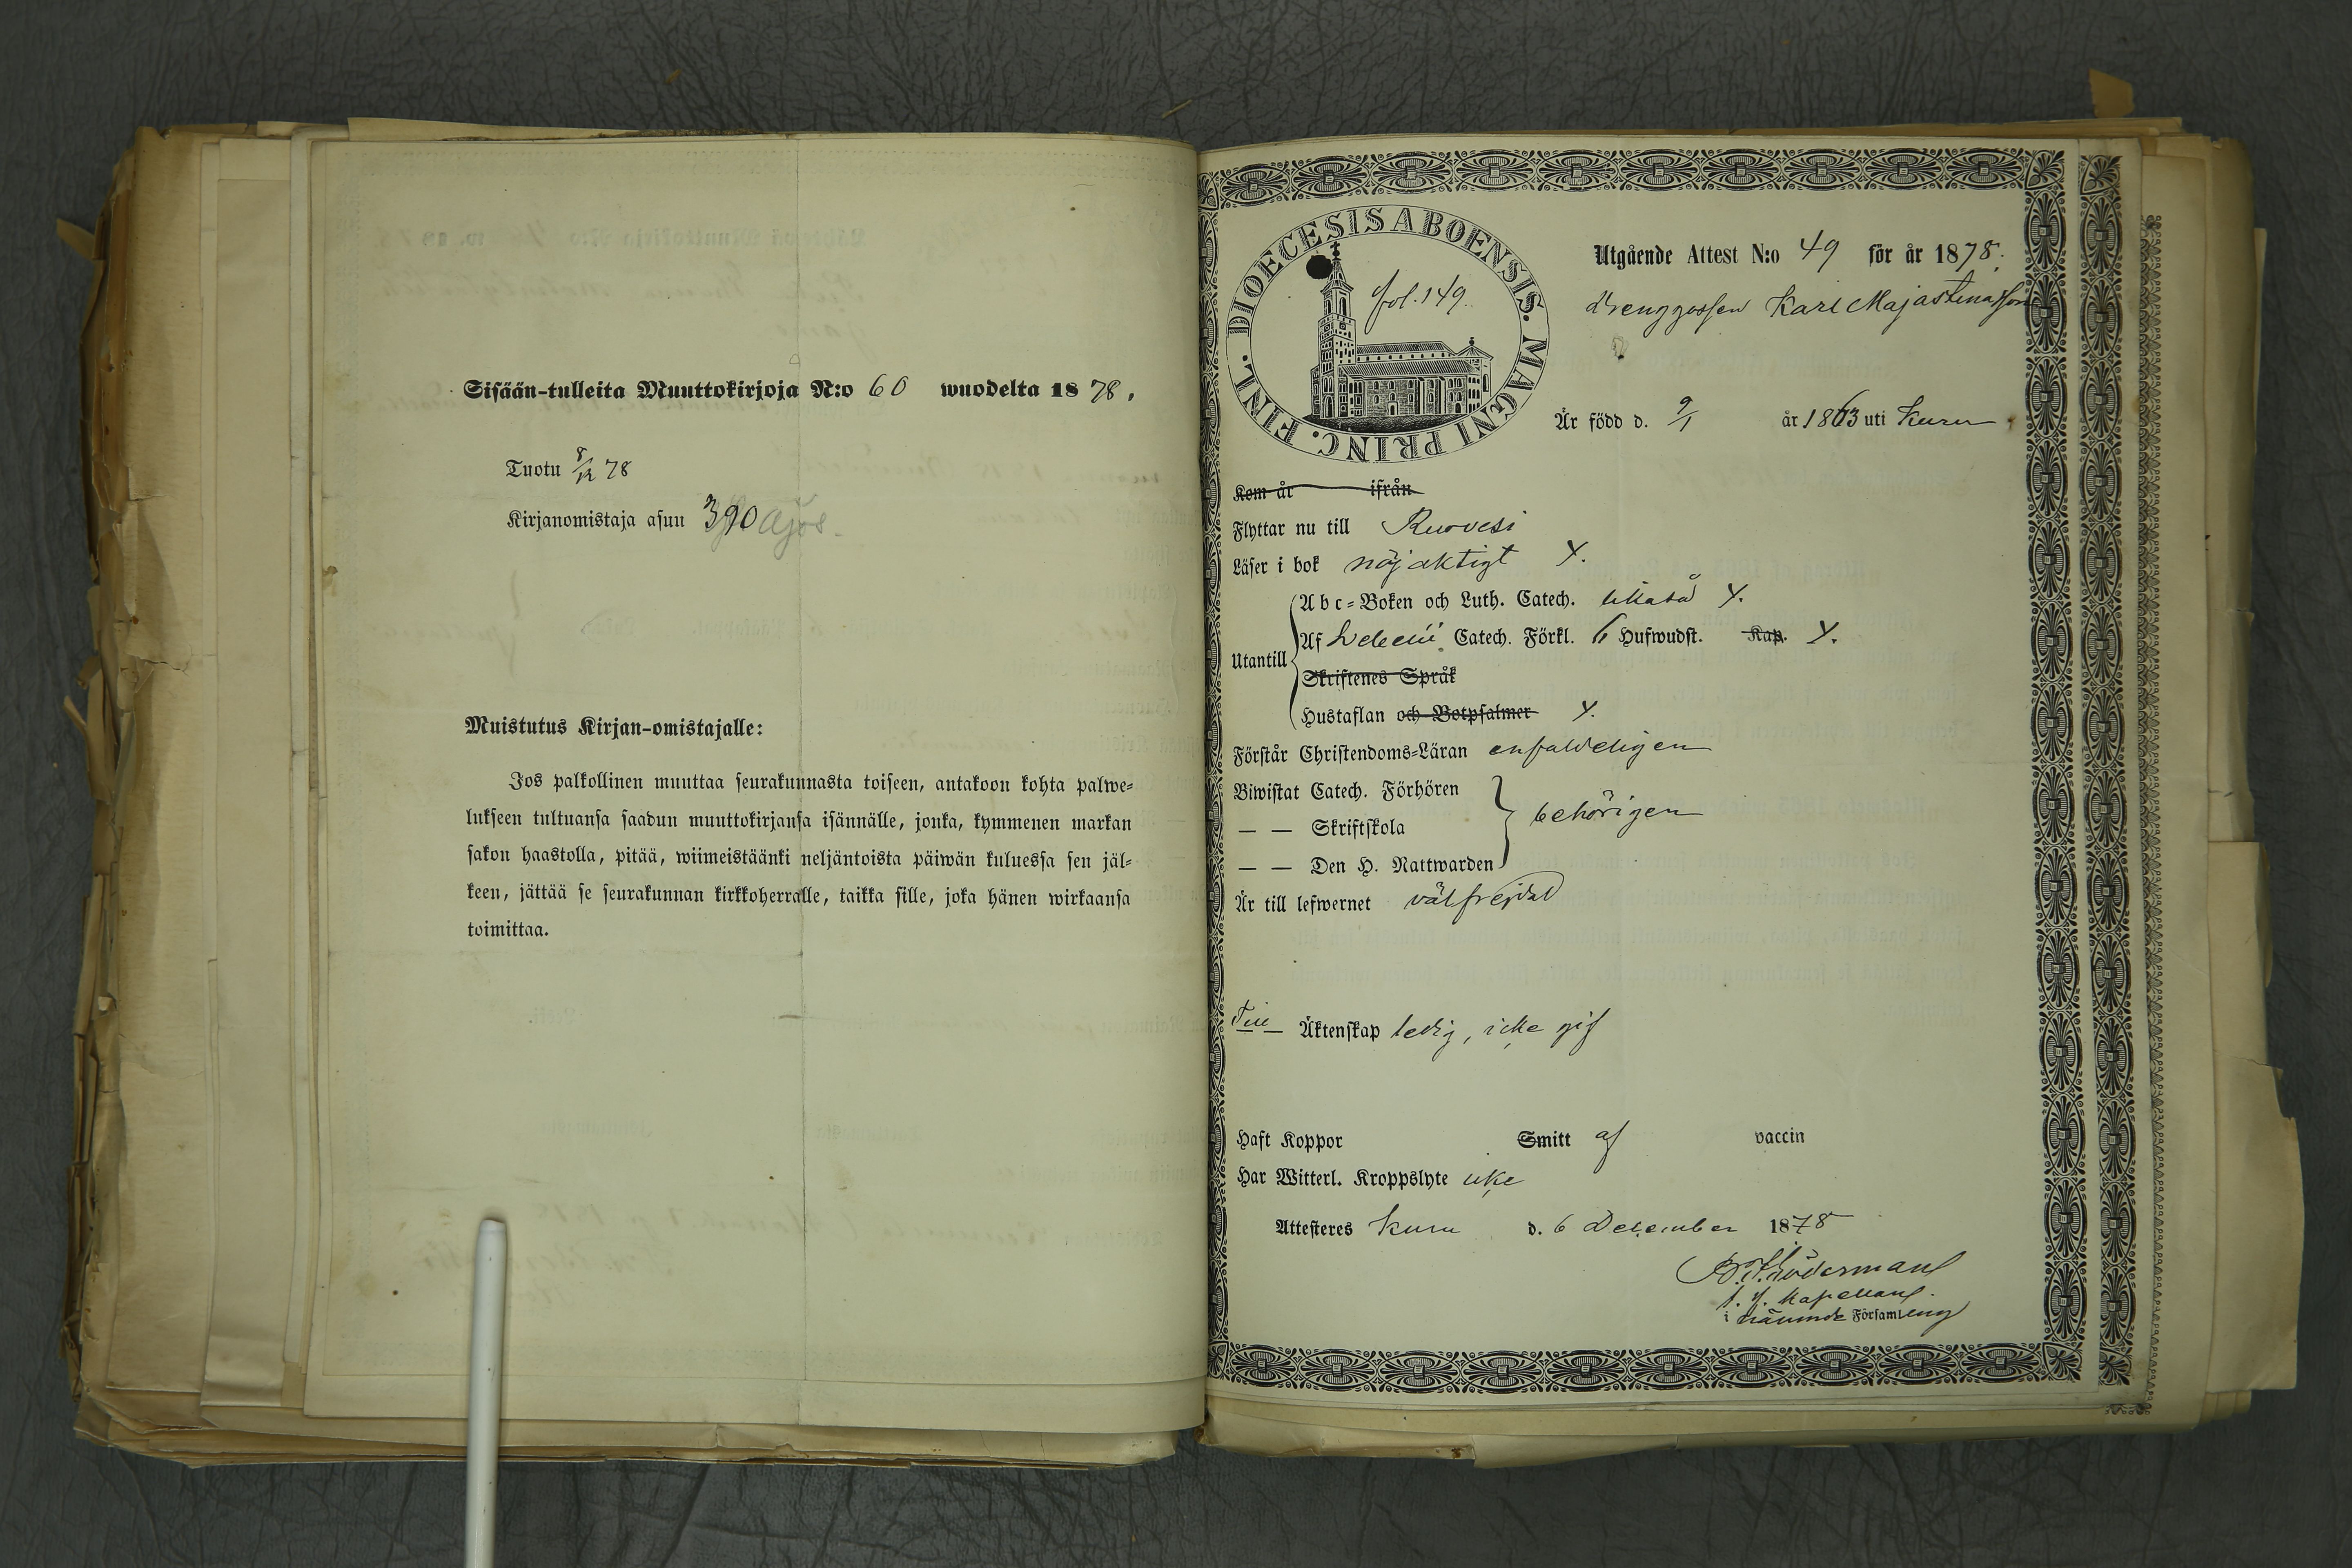 Sisään-tulleita Muuttokirjoja N:o 60 wuodelta 1878.
Tuotu 8/12 78
Kirjanomistaja asuu 390 Ajos.
Muistutus Kirjan-omistajalle:
Jos palkollinen muuttaa seurakunnasta toiseen, antakoon kohta palwe-
lukseen tultuansa saadun muuttokirjansa isännälle, jonka, kymmenen markan
sakon haastolla, pitää, wiimeistäänki neljäntoista päiwän kuluessa sen jäl-
keen, jättää se seurakunnan kirkkoherralle, taikka sille, joka hänen wirkaansa
toimittaa.
FINL. DIOECESIS ABOENSIS. MAGNI PRINC.
fol. 149.
Utgående Attest N:o 49 för år 1878.
drenggossen Karl Majastinasson
Är född d. 9/1 år 1863 uti Kuru
Kom år ifrån
Flyttar nu till Ruovesi
Läser i bok nöjaktigt Y.
Utantill
Abc-Boken och Luth. Catech. likaså Y.
Af Catech. Förkl. 6 Hufwudst. Kap. Y.
Skriftenes Språk
Hustaflan och Botpsalmer Y.
Förstår Christendoms-Läran enfaldeligen
Biwistat Catech. Förhören
— — Skriftskola
behörigen
— — Den H. Nattwarden
Är till lefwernet välfrejdad
Till Äktenskap ledig, icke gif
Haft Koppor Smitt af vaccin
Har Witterl. Kroppslyte icke
Attesteres Kuru d. 6 December 1878
Södermans
t. f. Kapellans.
i nämnde Församling